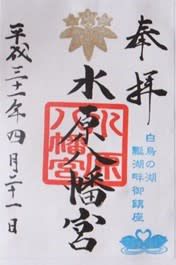 奉拝
白鳥の湖
瓢湖畔御鎮座
水原八幡宮
水原
八幡宮
平成三十一年四月二十一日